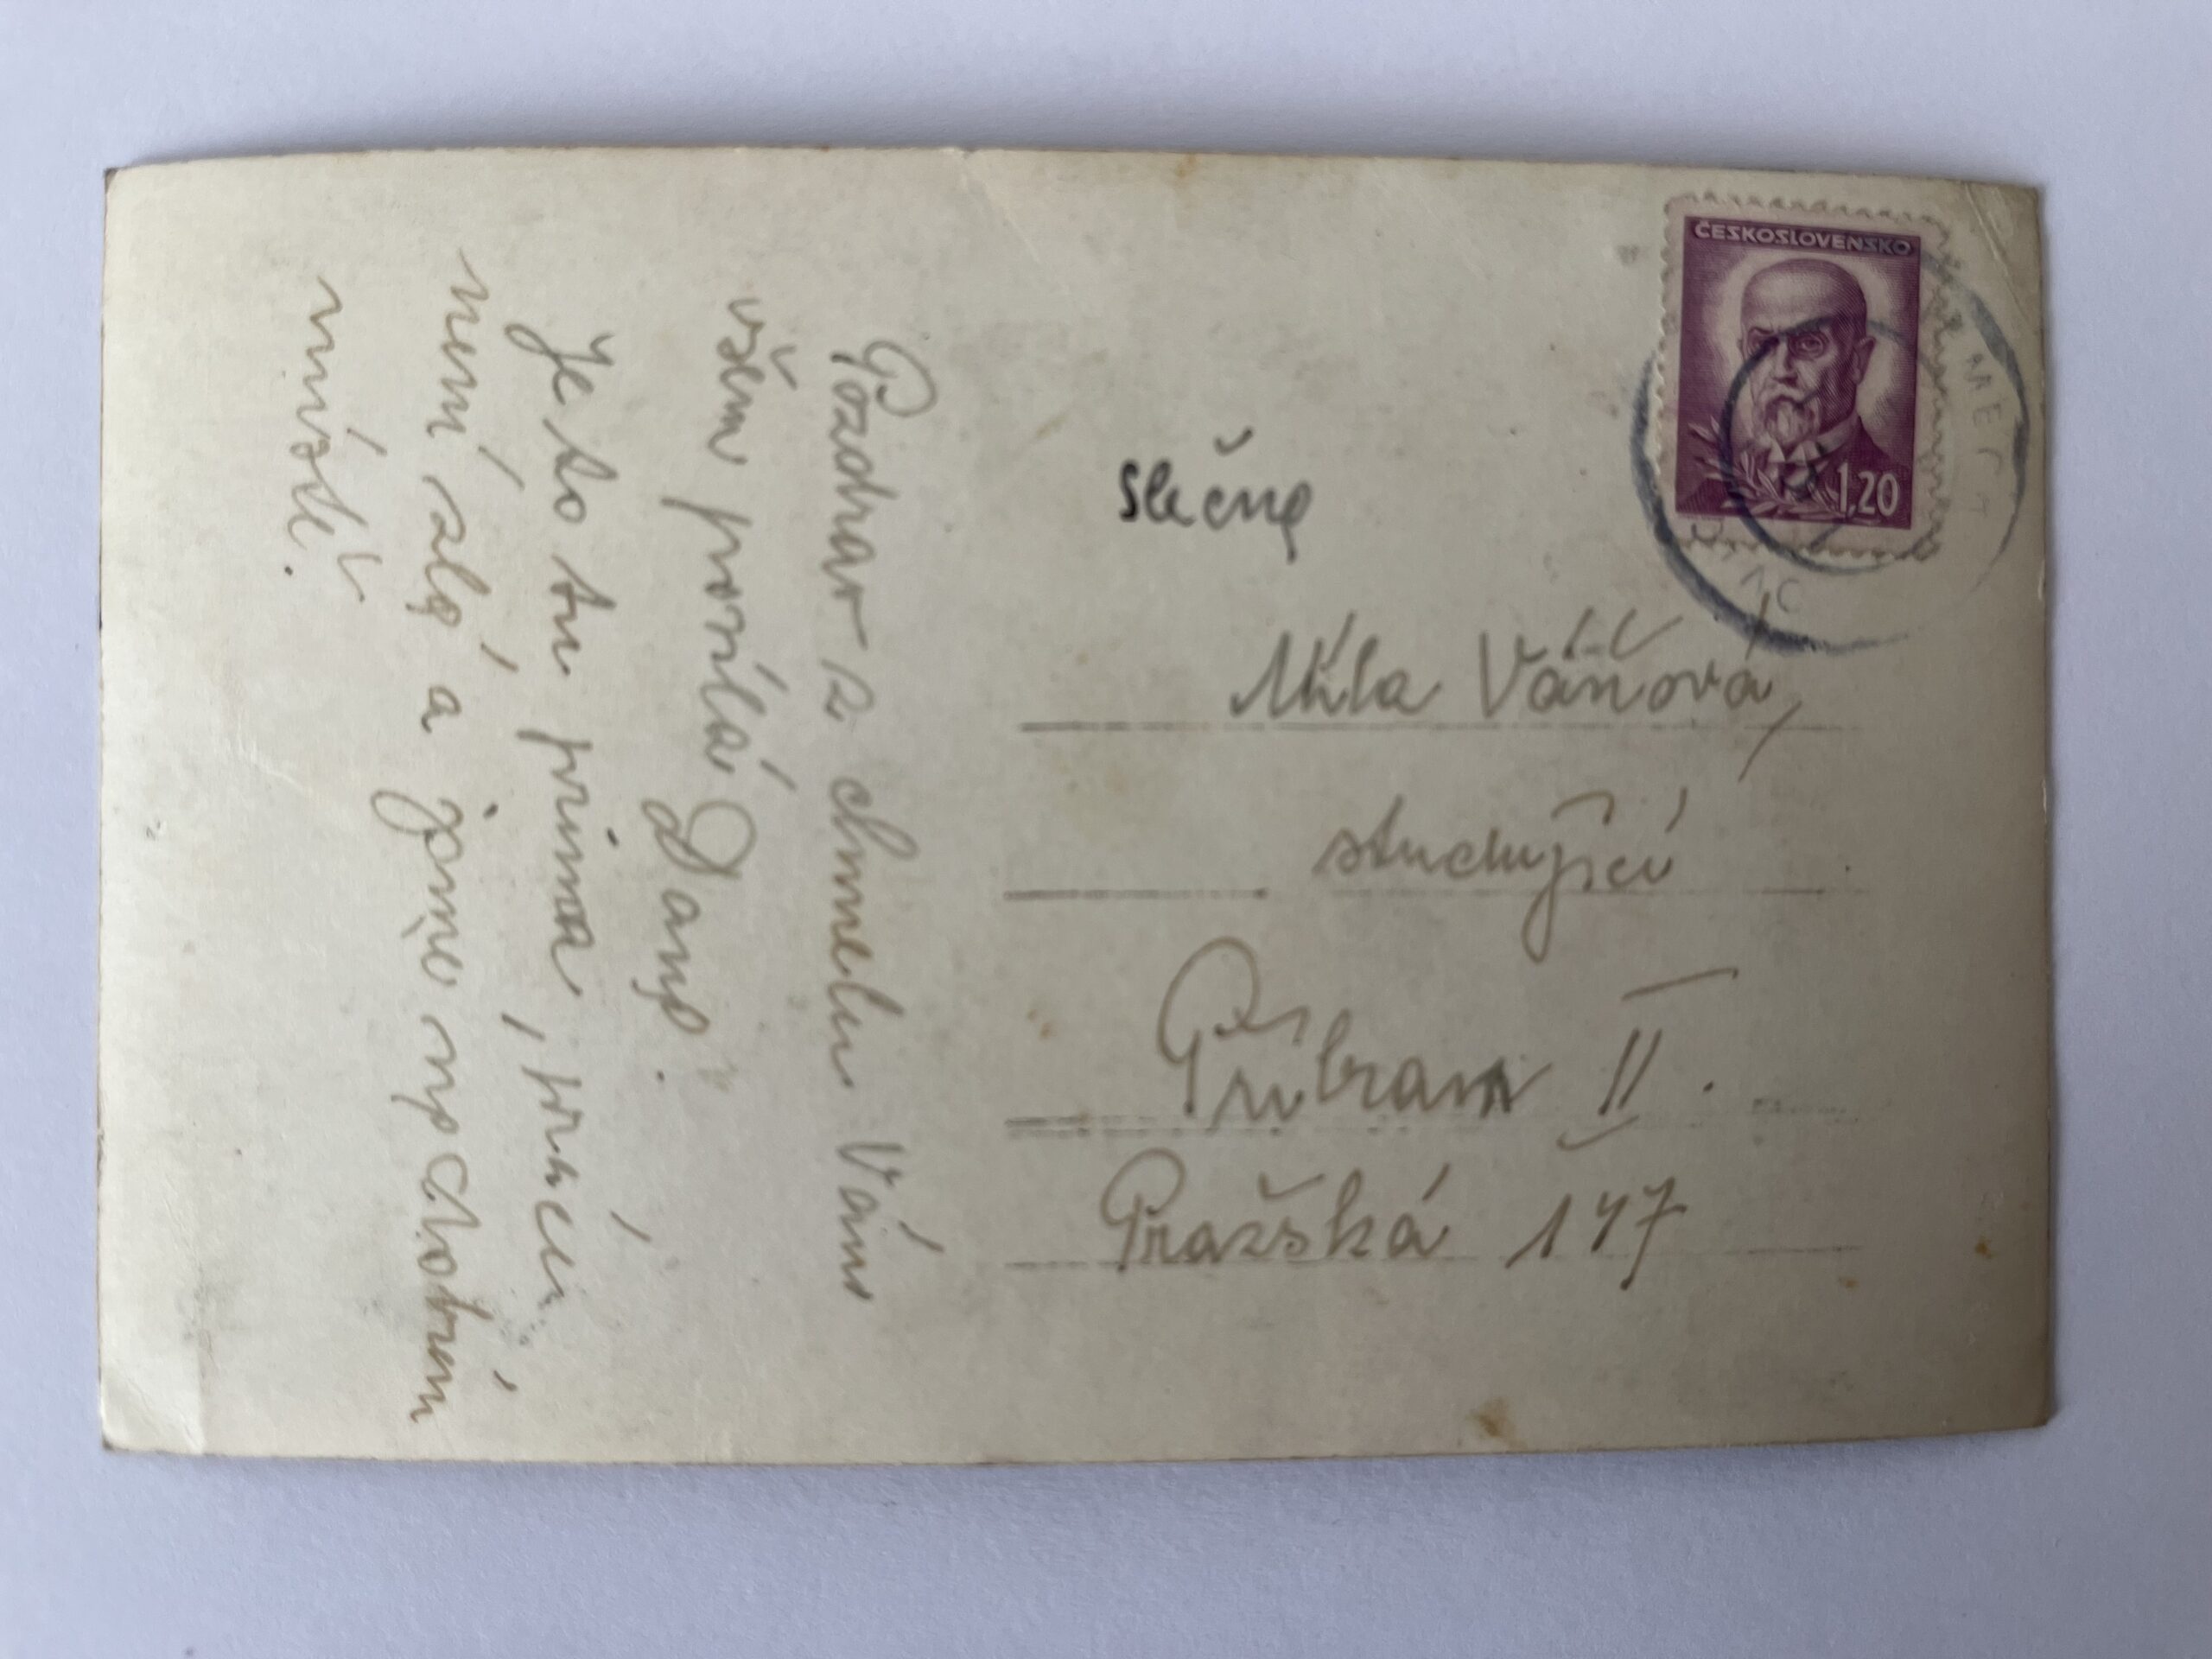 ČESKOSLOVENSKO
1,20
slečna
Míla Váňová,
studující
Příbram II.
Pražská 147
Pozdrav z chmelu Vám
všem posílá Dana.
Je to tu prima, práce
není zlá a jsme na dobrém
místě.